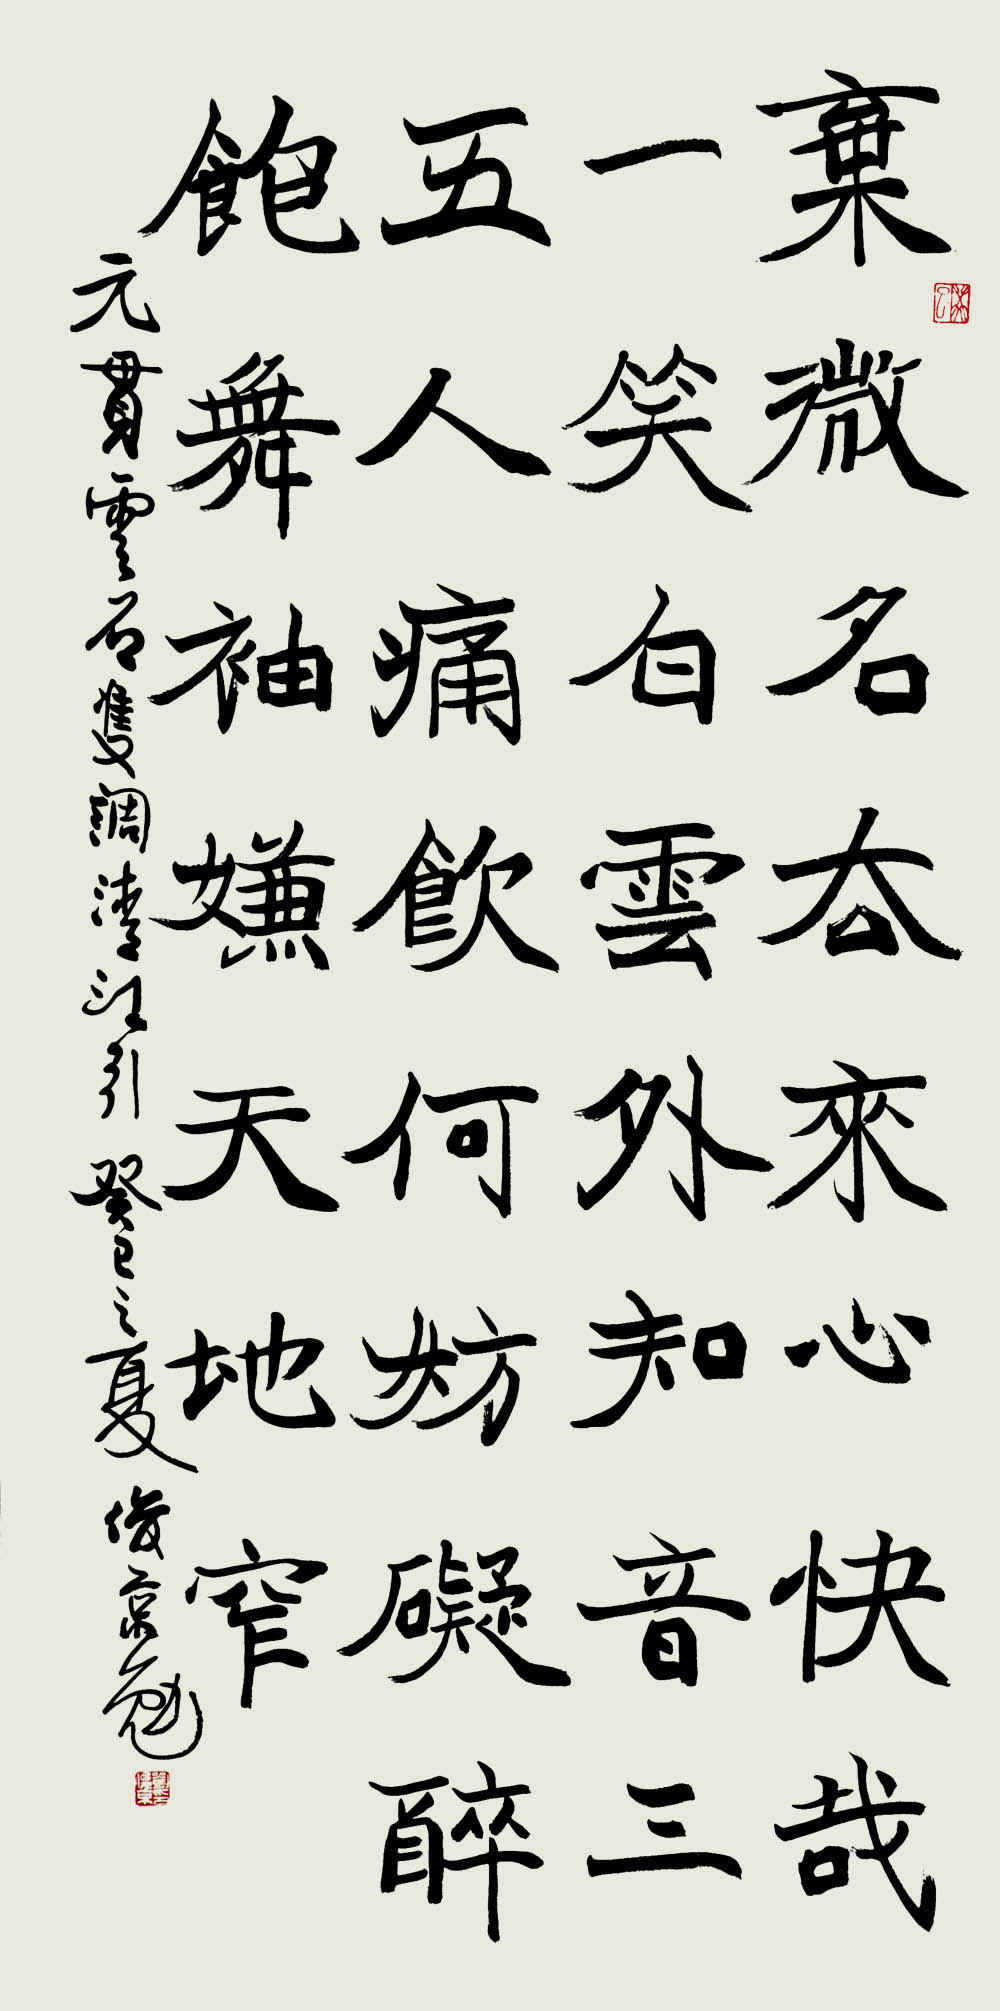 棄微名厺來心快哉
一笑白雲外知音三
五人痛飲何妨礙醉
飽舞袖嫌天地窄
元貫雲石隻調清江引 癸巳之夏 俊京勉